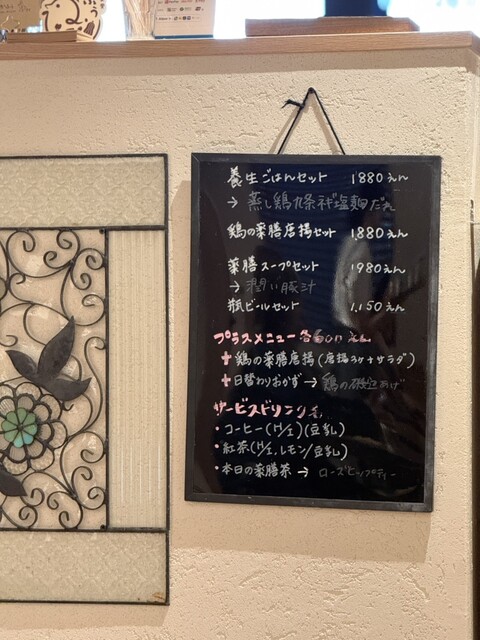 養生ごはんセット 1880えん
→ 蒸し鶏九条ネギ塩麹だれ
鶏の薬膳唐揚セット 1,880えん
薬膳スープセット 1980えん
→ 潤い豚汁
瓶ビールセット 1,150えん
プラスメニュー 各 えん
+ 鶏の薬膳唐揚(唐揚3ケ+サラダ)
+ 日替わりおかず → 鶏の磯辺あげ
サービスドリンク
・コーヒー(H/I)(豆乳)
・紅茶(H/I,レモン/豆乳)
・本日の薬膳茶 → ローズヒップティー